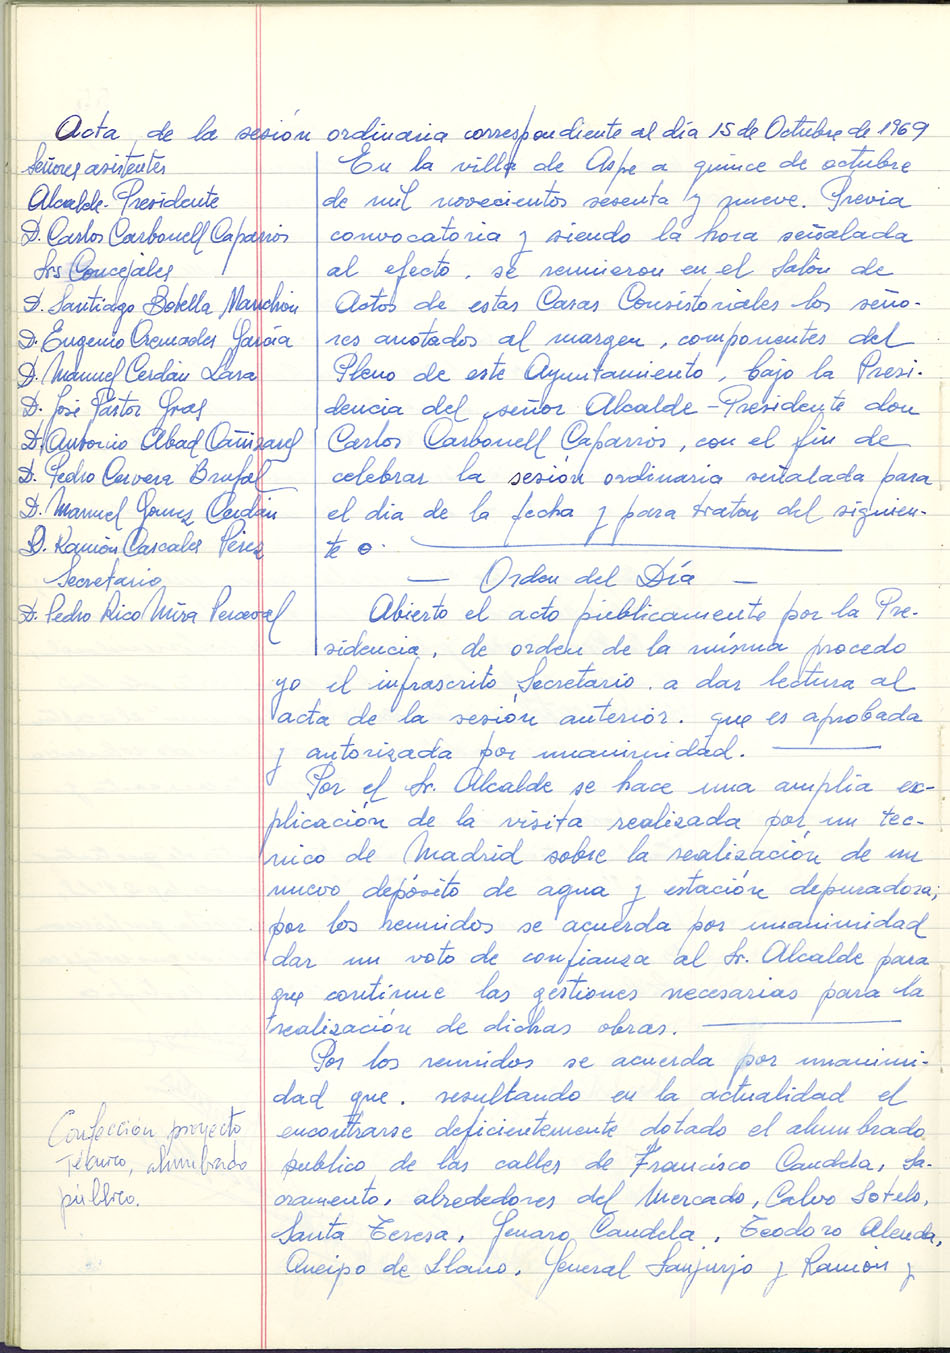 Acta de la sesión ordinaria correspondiente al día 15 de Octubre de 1969
Señores asistentes
Alcalde-Presidente
D. Carlos Carbonell Caparros
Srs Concejales
D. Santiago Botella Manchón
D. Eugenio Cremades García
D. Manuel Cerdán Lara
D. José Pastor Gras
D. Antonio Abad Cañizares
D. Pedro Cervera Brufal
D. Manuel Gomez Cerdán
D. Ramón Cascales Pérez
Secretario
D. Pedro Rico Mira Perceval
En la villa de Aspe a quince de octubre
de mil novecientos sesenta y nueve. Previa
convocatoria y siendo la hora señalada
al efecto, se reunieron en el Salón de
Actos de estas Casas Consistoriales los seño-
res anotados al margen, componentes del
Pleno de este Ayuntamiento, bajo la Presi-
dencia del señor Alcalde-Presidente don
Carlos Carbonell Caparros, con el fin de
celebrar la sesión ordinaria señalada para
el dia de la fecha y para tratar del siguien-
te o.
— Orden del Día —
Abierto el acto publicamente por la Pre-
sidencia, de orden de la misma procedo
yo el infrascrito Secretario. a dar lectura al
acta de la sesión anterior. que es aprobada
y autorizada por unanimidad.
Por el Sr. Alcalde se hace una amplia ex-
plicación de la visita realizada por un tec-
nico de Madrid sobre la realización de un
nuevo depósito de agua y estación depuradora;
por los reunidos se acuerda por unanimidad
dar un voto de confianza al Sr. Alcalde para
que continue las gestiones necesarias para la
realización de dichas obras.
Por los reunidos se acuerda por unanimi-
dad que. resultando en la actualidad el
encontrarse deficientemente dotado el alumbrado
publico de las calles de Francisco Candela, Sa-
cramento, alrededores del Mercado, Calvo Sotelo,
Santa Teresa, Genaro Candela, Teodoro Alenda,
Queipo de Llano, General Sanjurjo y Ramón y
Confección proyecto
Técnico, alumbrado
público.